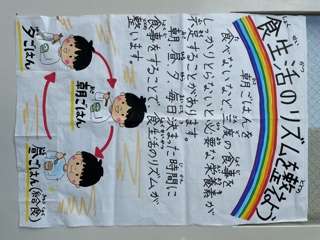 食生活のリズムを整えよう
朝ごはんを
食べないなど、三度の食事を
しっかりとらないと必要な栄養素が
不足することがあります。
朝、昼、夕、毎日決まった時間に
食事をすることで、食生活のリズムが
整います。
夕ごはん
朝ごはん
昼ごはん(給食)